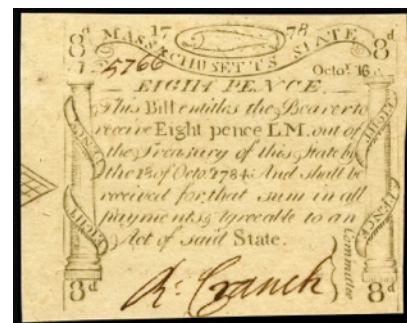 8d 17 78 8d
MASSACHUSETTS STATE
5766 Octor. 16
EIGHT PENCE.
This Bill entitles the Bearer to
receive Eight pence LM. out of
the Treasury of this State by
the 18 of Octor. 1784: And shall be
received for that sum in all
payments, Agreeable to an
Act of said State.
EIGHT
PENCE
EIGHT
PENCE
Committee
8d 8d
R: Cranch